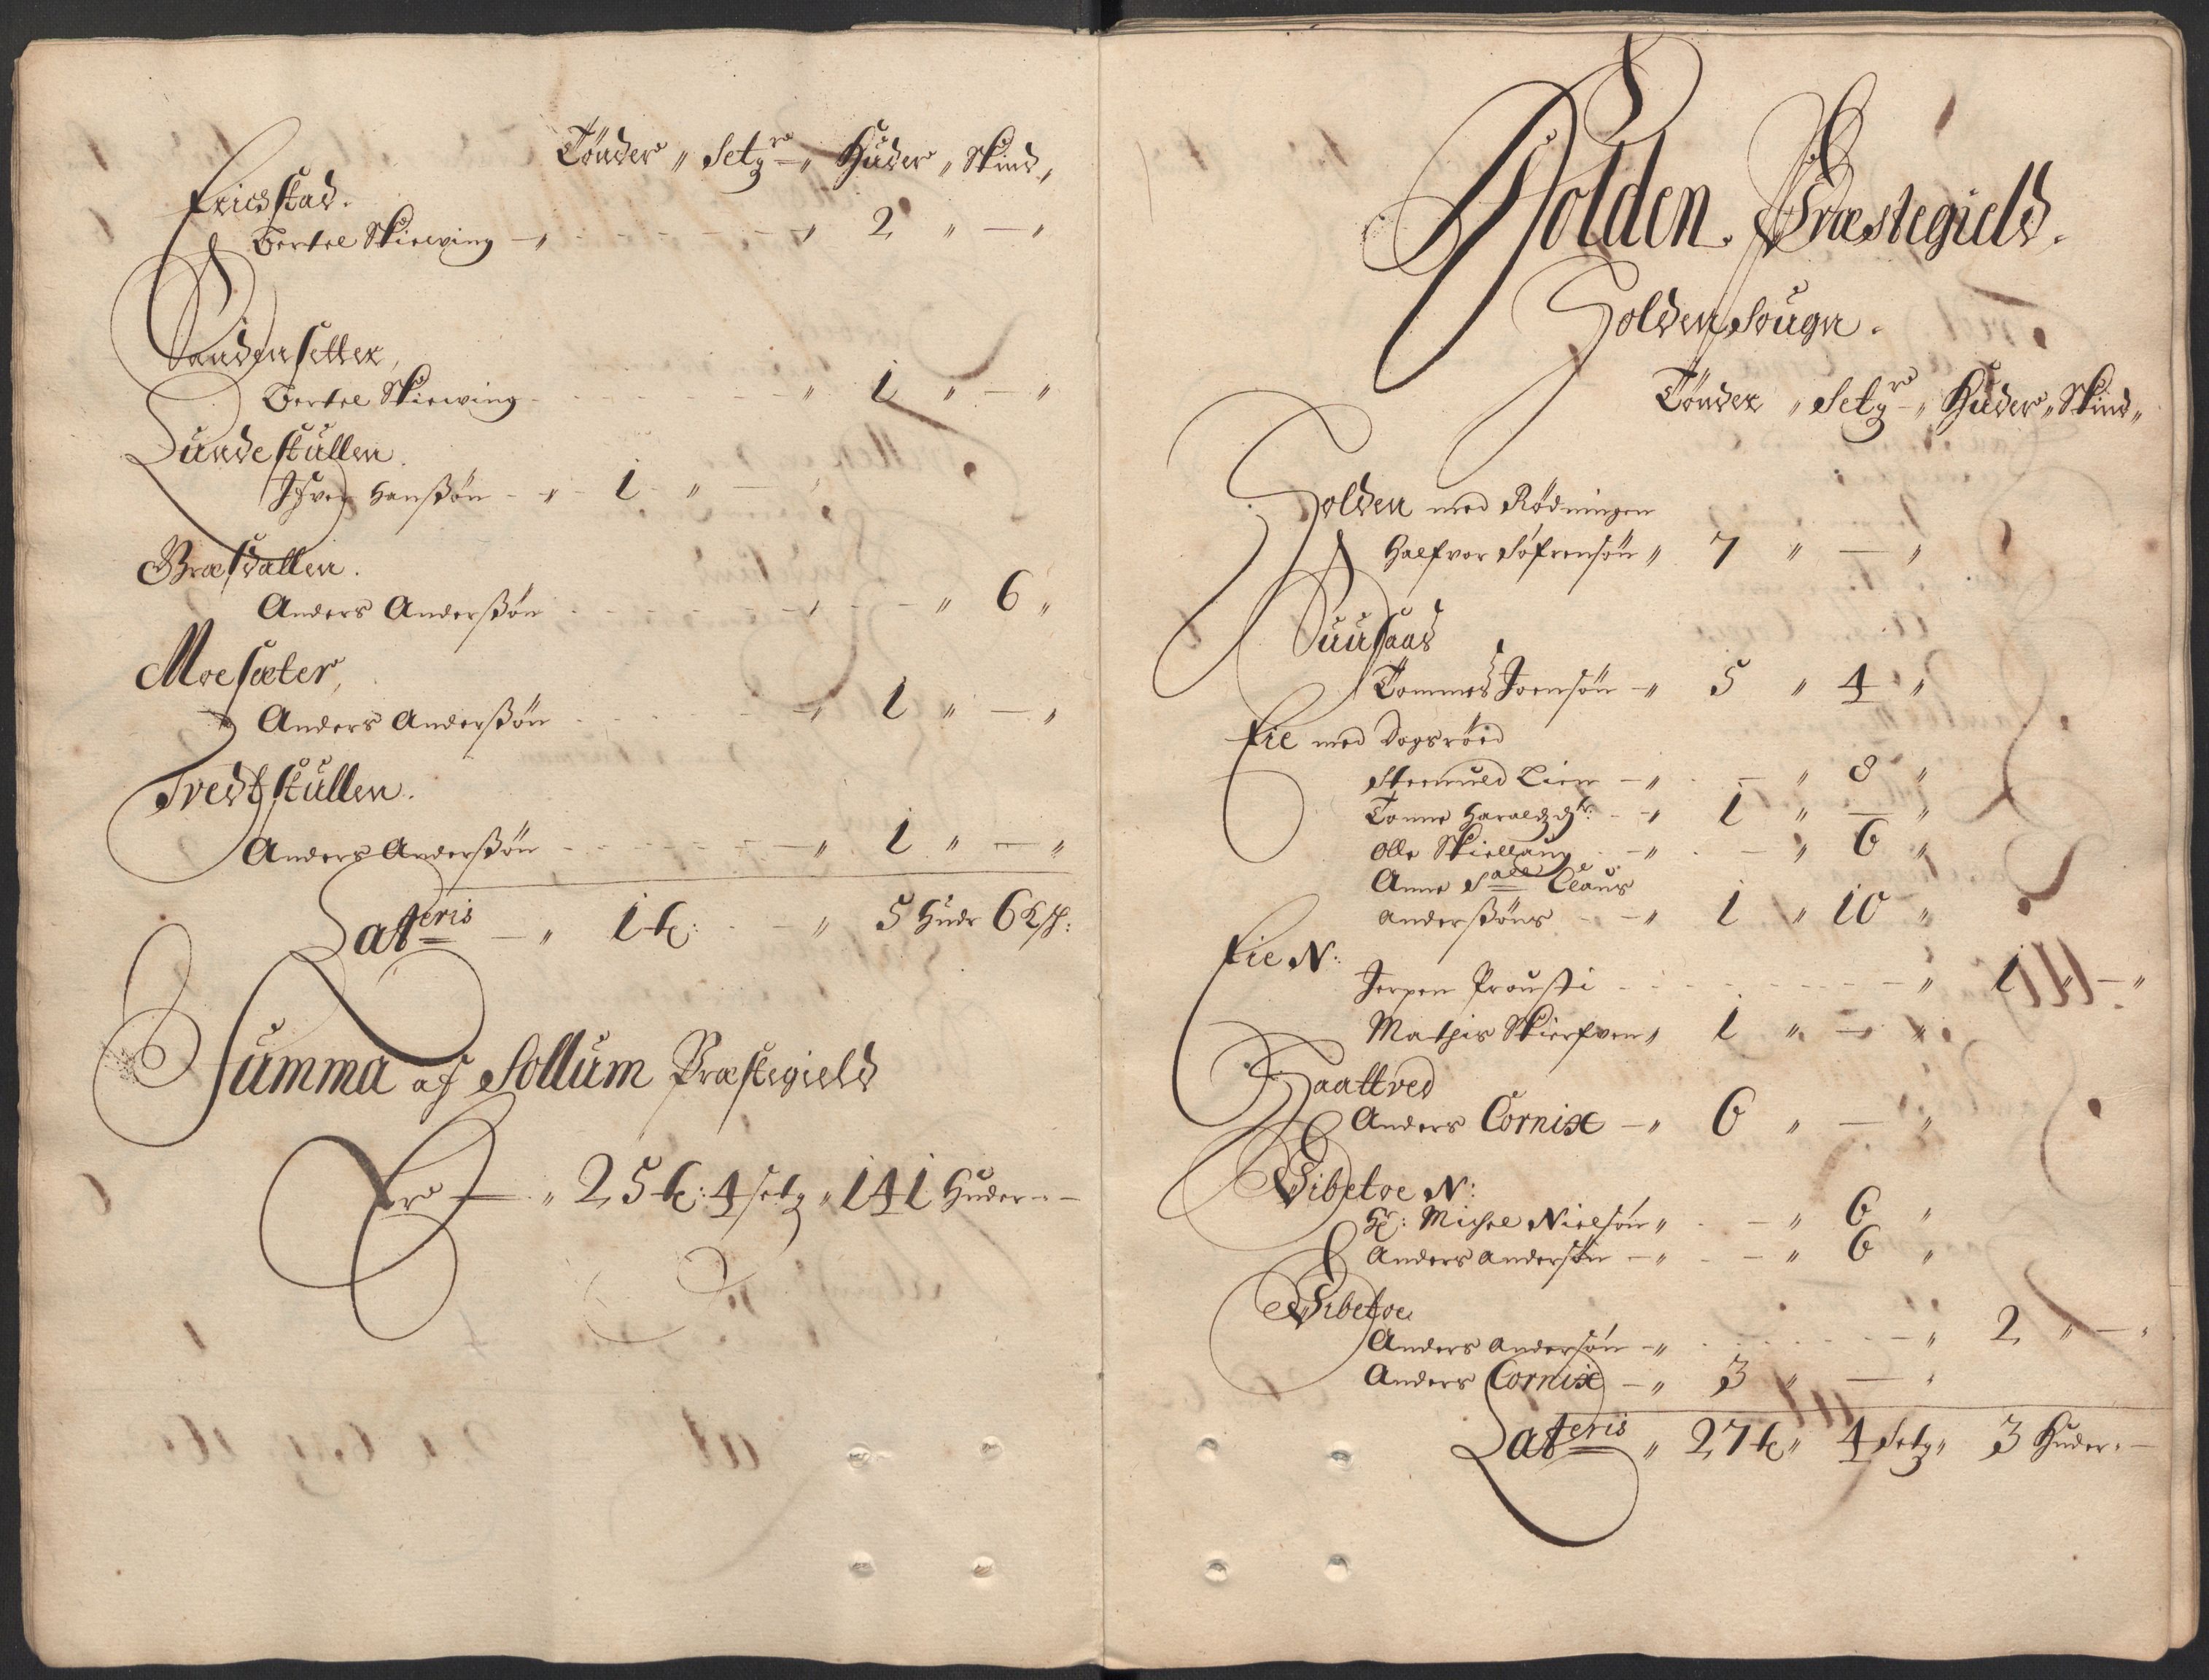 Tønder „ Setg.r „ Huder „ Skind „
Ericsstad.
Bertel Skiewing — „ - - - - - „ 2 „ — „
Sandensetter,
Bertel Skiewing - - - - - - „ 1 „ — „
Lundestullen.
Ifver Hanßøn - „ - 1 - „ —
Bræsdallen.
Anders Anderßøn - - - - - „ - — „ 6 „
Moesæter,
Anders Anderßøn - - - - - „ 1 „ — „
Tvedtstullen.
Anders Anderßøn - - - - - — „ 1 „ — „
Lateris — „ 1 t: - — „ 5 Hudr 6 Ksk:
Summa af Sollum Præstegield
Er — „ 25 t: 4 setg „ 141 Huder - -
Holden Præstegield.
Holden Sougn.
Tønder „ Setg.r „ Huder „ Skind „
Holden med Rødningen
Halfvor Søfrensøn „ 7 „ — „
Suusaas
Tommes Joensøn — „ 5 „ 4 „
Eie med Dagsrøed
Steenuld Lien — „ - — „ 8 „
Tonne Haraldzdtr: - „ 1 „ — „
Olle Skiellaug - — „ - — „ 6 „
Anne Sall Claus
Anderßøns - - „ 1 „ 10 „
Eie N:
Jerpen Prousti - - - - - - „ 1 „ — „
Mathis Skierfven „ 1 „ — „
Haattved
Anders Cornix — „ 6 „ — „
Wibetoe N:
Hr: Michel Nielsøn „ - — „ 6 „
Anders Andersøn — „ - — „ 6 „
Wibetoe
Anders Andersøn — „ - - - - — „ 2 „ — „
Anders Cornix — „ 3 „ — „
Lateris „ 27 t „ 4 Setg „ 3 Huder - —